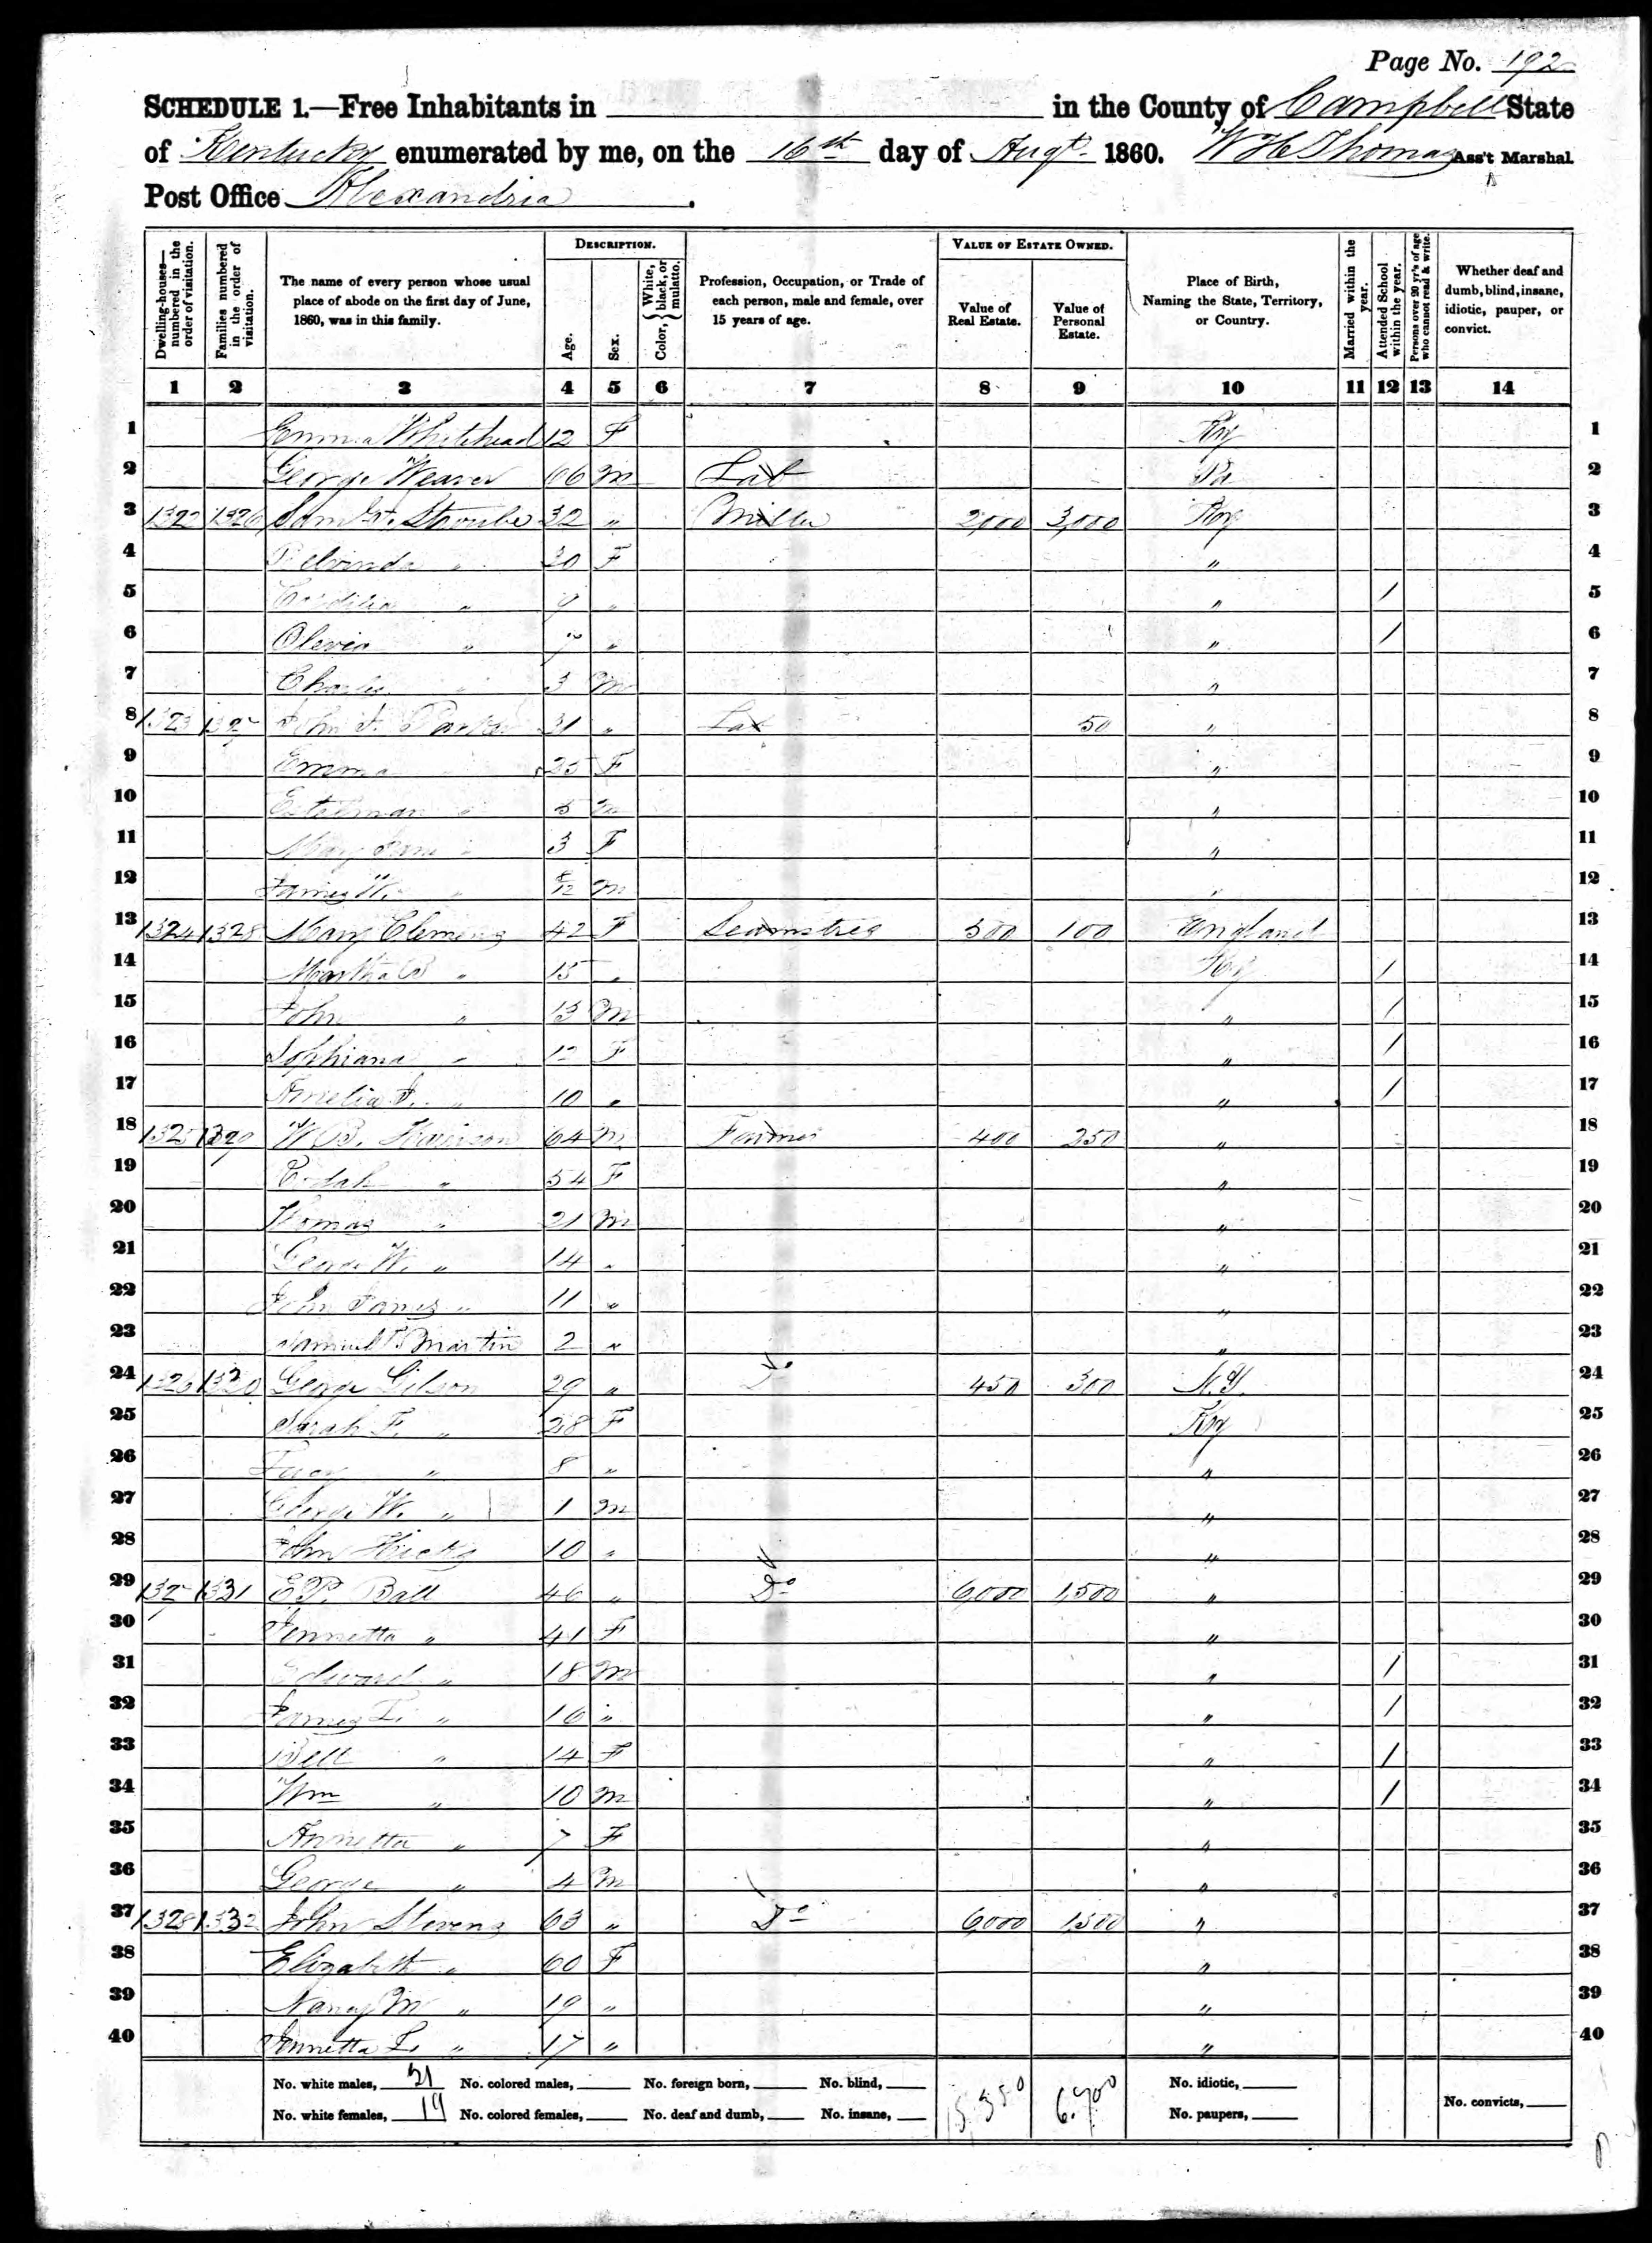 Page No. 192
SCHEDULE 1.—Free Inhabitants in in the County of Campbell State
of Kentucky enumerated by me, on the 16th day of Augt. 1860. W H Thomas Ass't Marshal.
Post Office Alexandria.
Dwelling-houses—numbered in the order of visitation.
Families numbered in the order of visitation.
The name of every person whose usual place of abode on the first day of June, 1860, was in this family.
DESCRIPTION.
Age.
Sex.
Color, {White, black, or mulatto.
Profession, Occupation, or Trade of each person, male and female, over 15 years of age.
VALUE OF ESTATE OWNED.
Value of Real Estate.
Value of Personal Estate.
Place of Birth, Naming the State, Territory, or Country.
Married within the year.
Attended School within the year.
Persons over 20 yr's of age who cannot read & write.
Whether deaf and dumb, blind, insane, idiotic, pauper, or convict.
1 2 3 4 5 6 7 8 9 10 11 12 13 14
1 Emma Whitehead 12 F Ky 1
2 George Weaver 66 m Lab Pa 2
3 1322 1326 Saml. Stroube 32 " Miller 2,000 3,000 Ky 3
4 " 30 F " 4
5 " 9 " " / 5
6 Olevia " 7 " " / 6
7 Charles " 3 m " 7
8 1323 1327 John J. Parker 31 " Lab 50 " 8
9 Emma 25 F " 9
10 " 5 m " 10
11 Mary Jane " 3 F " 11
12 James W. " /12 m " 12
13 1324 1328 Mary Clemens 42 F Seamstres 500 100 England 13
14 Martha B " 15 " Ky / 14
15 John " 13 m " / 15
16 Sophiana " 12 F " / 16
17 Amelia J. " 10 " " / 17
18 1325 1329 W B. Harrison 64 m Farmer 400 250 " 18
19 " 54 F " 19
20 Thomas " 21 m " 20
21 George W. " 14 " " 21
22 John James " 11 " " 22
23 Samuel Martin 2 " " 23
24 1326 1330 George Gilson 29 " Do 450 300 N.Y. 24
25 Sarah F. " 28 F Ky 25
26 " 8 " " 26
27 George W. " 1 m " 27
28 John Hicks 10 " " 28
29 1327 1331 E.P. Ball 46 " Do 6,000 1,500 " 29
30 Jennetta " 41 F " 30
31 Edward " 18 m " / 31
32 James T. " 16 " " / 32
33 Bell " 14 F " / 33
34 Wm " 10 m " / 34
35 Annetta " 7 F " 35
36 George " 4 m " 36
37 1328 1332 John Stevens 63 " Do 6000 1,500 " 37
38 Elizabeth " 60 F " 38
39 Nancy M " 19 " " 39
40 Jennetta L. " 17 " " 40
No. white males, 21 No. colored males, No. foreign born, No. blind, 15,350 6,700 No. idiotic,
No. white females, 19 No. colored females, No. deaf and dumb, No. insane, No. paupers, No. convicts,